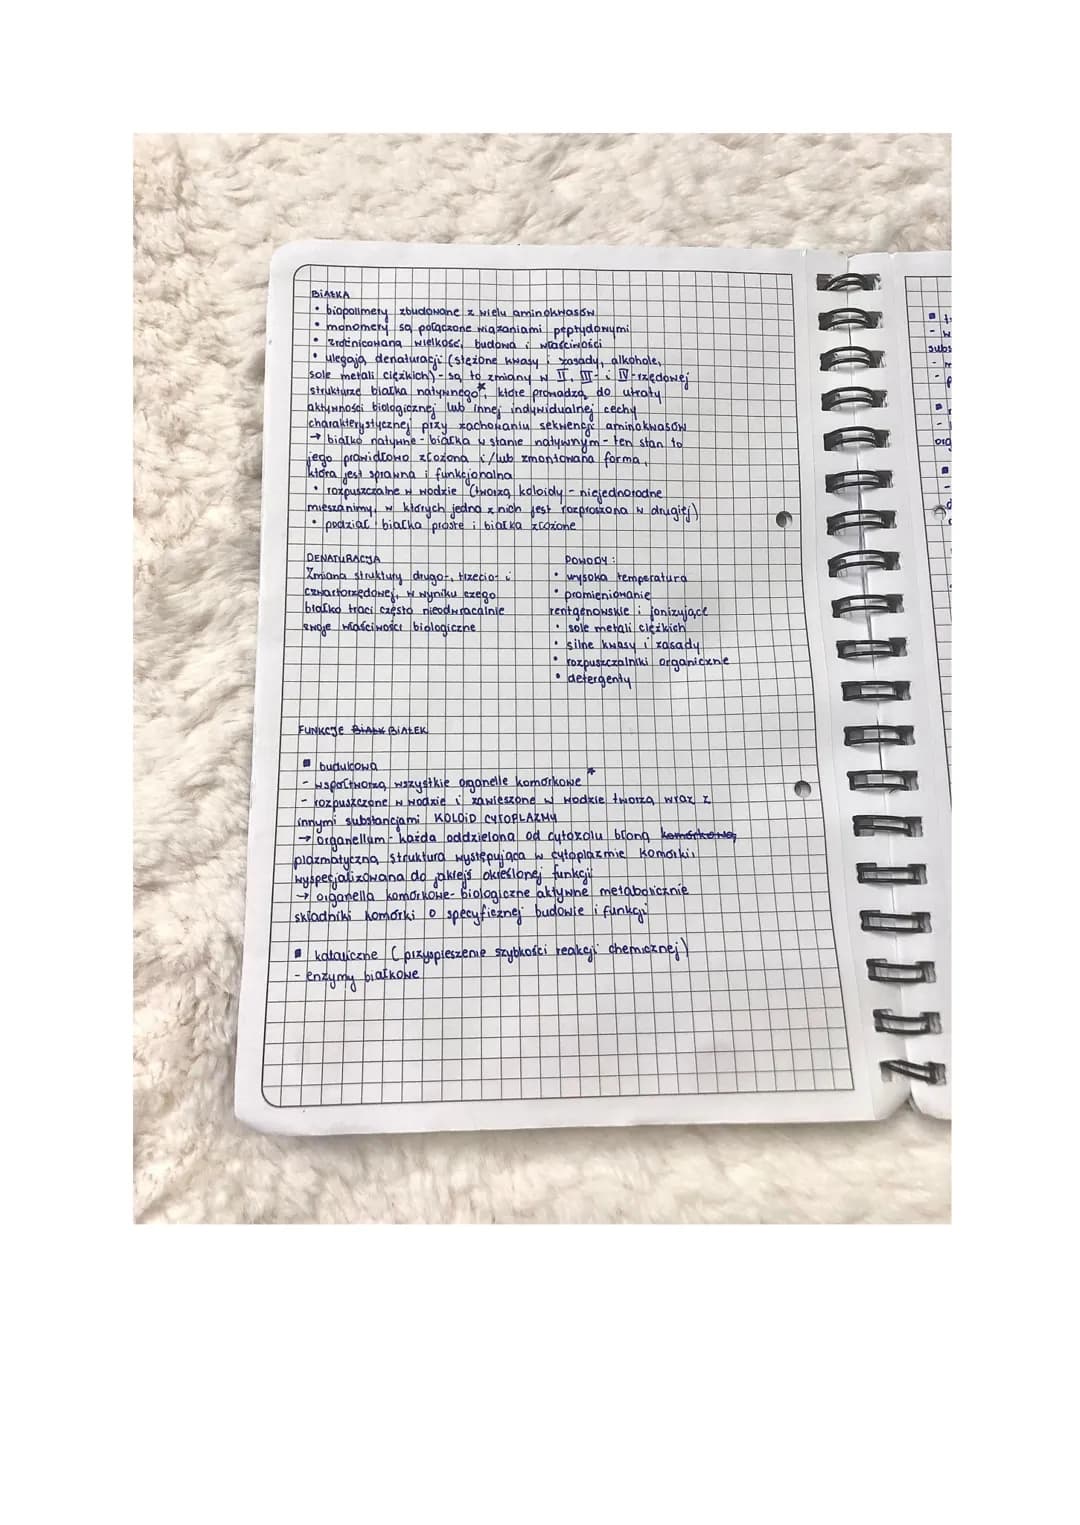 BIAŁKA
• biopolimery zbudowane z wielu aminokwasów
• monomery są połączone wiązaniami peptydowymi
• zróżnicowana wielkość, budowa i właściwości
• ulegają denaturacji (stężone kwasy i zasady, alkohole,
sole metali ciężkich) - są to zmiany w II, III- i IV-rzędowej
strukturze białka natywnego*, które prowadzą do utraty
aktywności biologicznej lub innej indywidualnej cechy
charakterystycznej przy zachowaniu sekwencji aminokwasów
→ białko natywne - białka w stanie natywnym - ten stan to
jego prawidłowo złożona i/lub zmontowana forma,
która jest sprawna i funkcjonalna
• rozpuszczalne w wodzie (tworzą koloidy - niejednorodne
mieszaniny, w których jedna z nich jest rozproszona w drugiej)
• podział: białka proste i białka złożone
DENATURACJA
Zmiana struktury drugo-, trzecio- i
czwartorzędowej, w wyniku czego
białko traci często nieodwracalnie
swoje właściwości biologiczne
POWODY:
• wysoka temperatura
• promieniowanie
rentgenowskie i jonizujące
• sole metali ciężkich
• silne kwasy i zasady
• rozpuszczalniki organiczne
• detergenty
FUNKCJE BIAŁEK
▪ budulcowa
- współtworzą wszystkie organelle komórkowe*
- rozpuszczone w wodzie i zawieszone w wodzie tworzą wraz z
innymi substancjami KOLOID CYTOPLAZMY
→ organellum - każda oddzielona od cytozolu błoną komórkową
plazmatyczną struktura występująca w cytoplazmie komórki,
wyspecjalizowana do jakiejś określonej funkcji
→ organella komórkowe - biologiczne aktywne metabolicznie
składniki komórki o specyficznej budowie i funkcji
▪ kataliczne (przyspieszenie szybkości reakcji chemicznej)
- enzymy białkowe